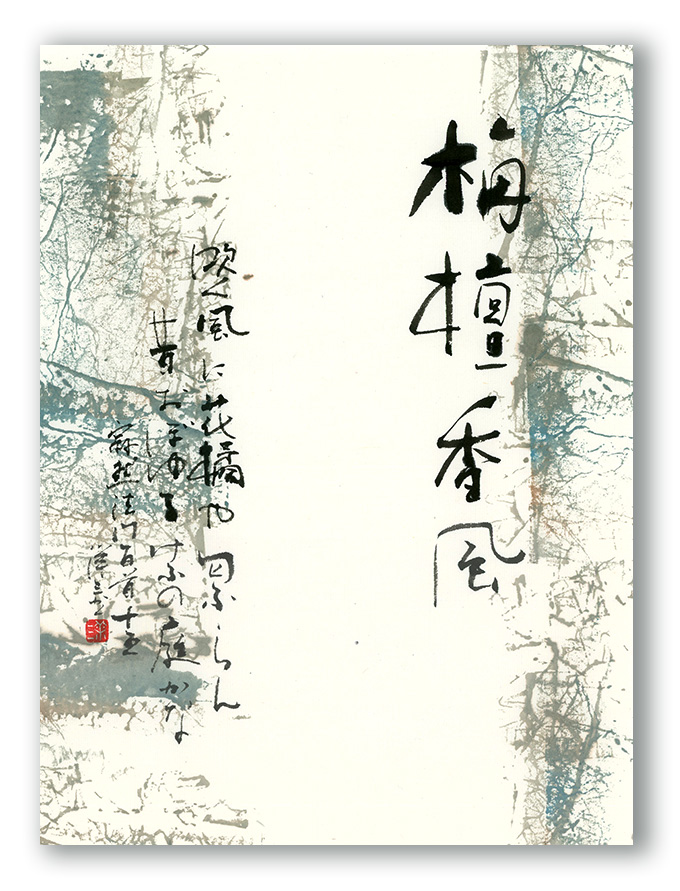 栴檀香風
吹く風に花橘や匂ふらん
昔おぼゆるけふの庭かな
寂然法門百首十五